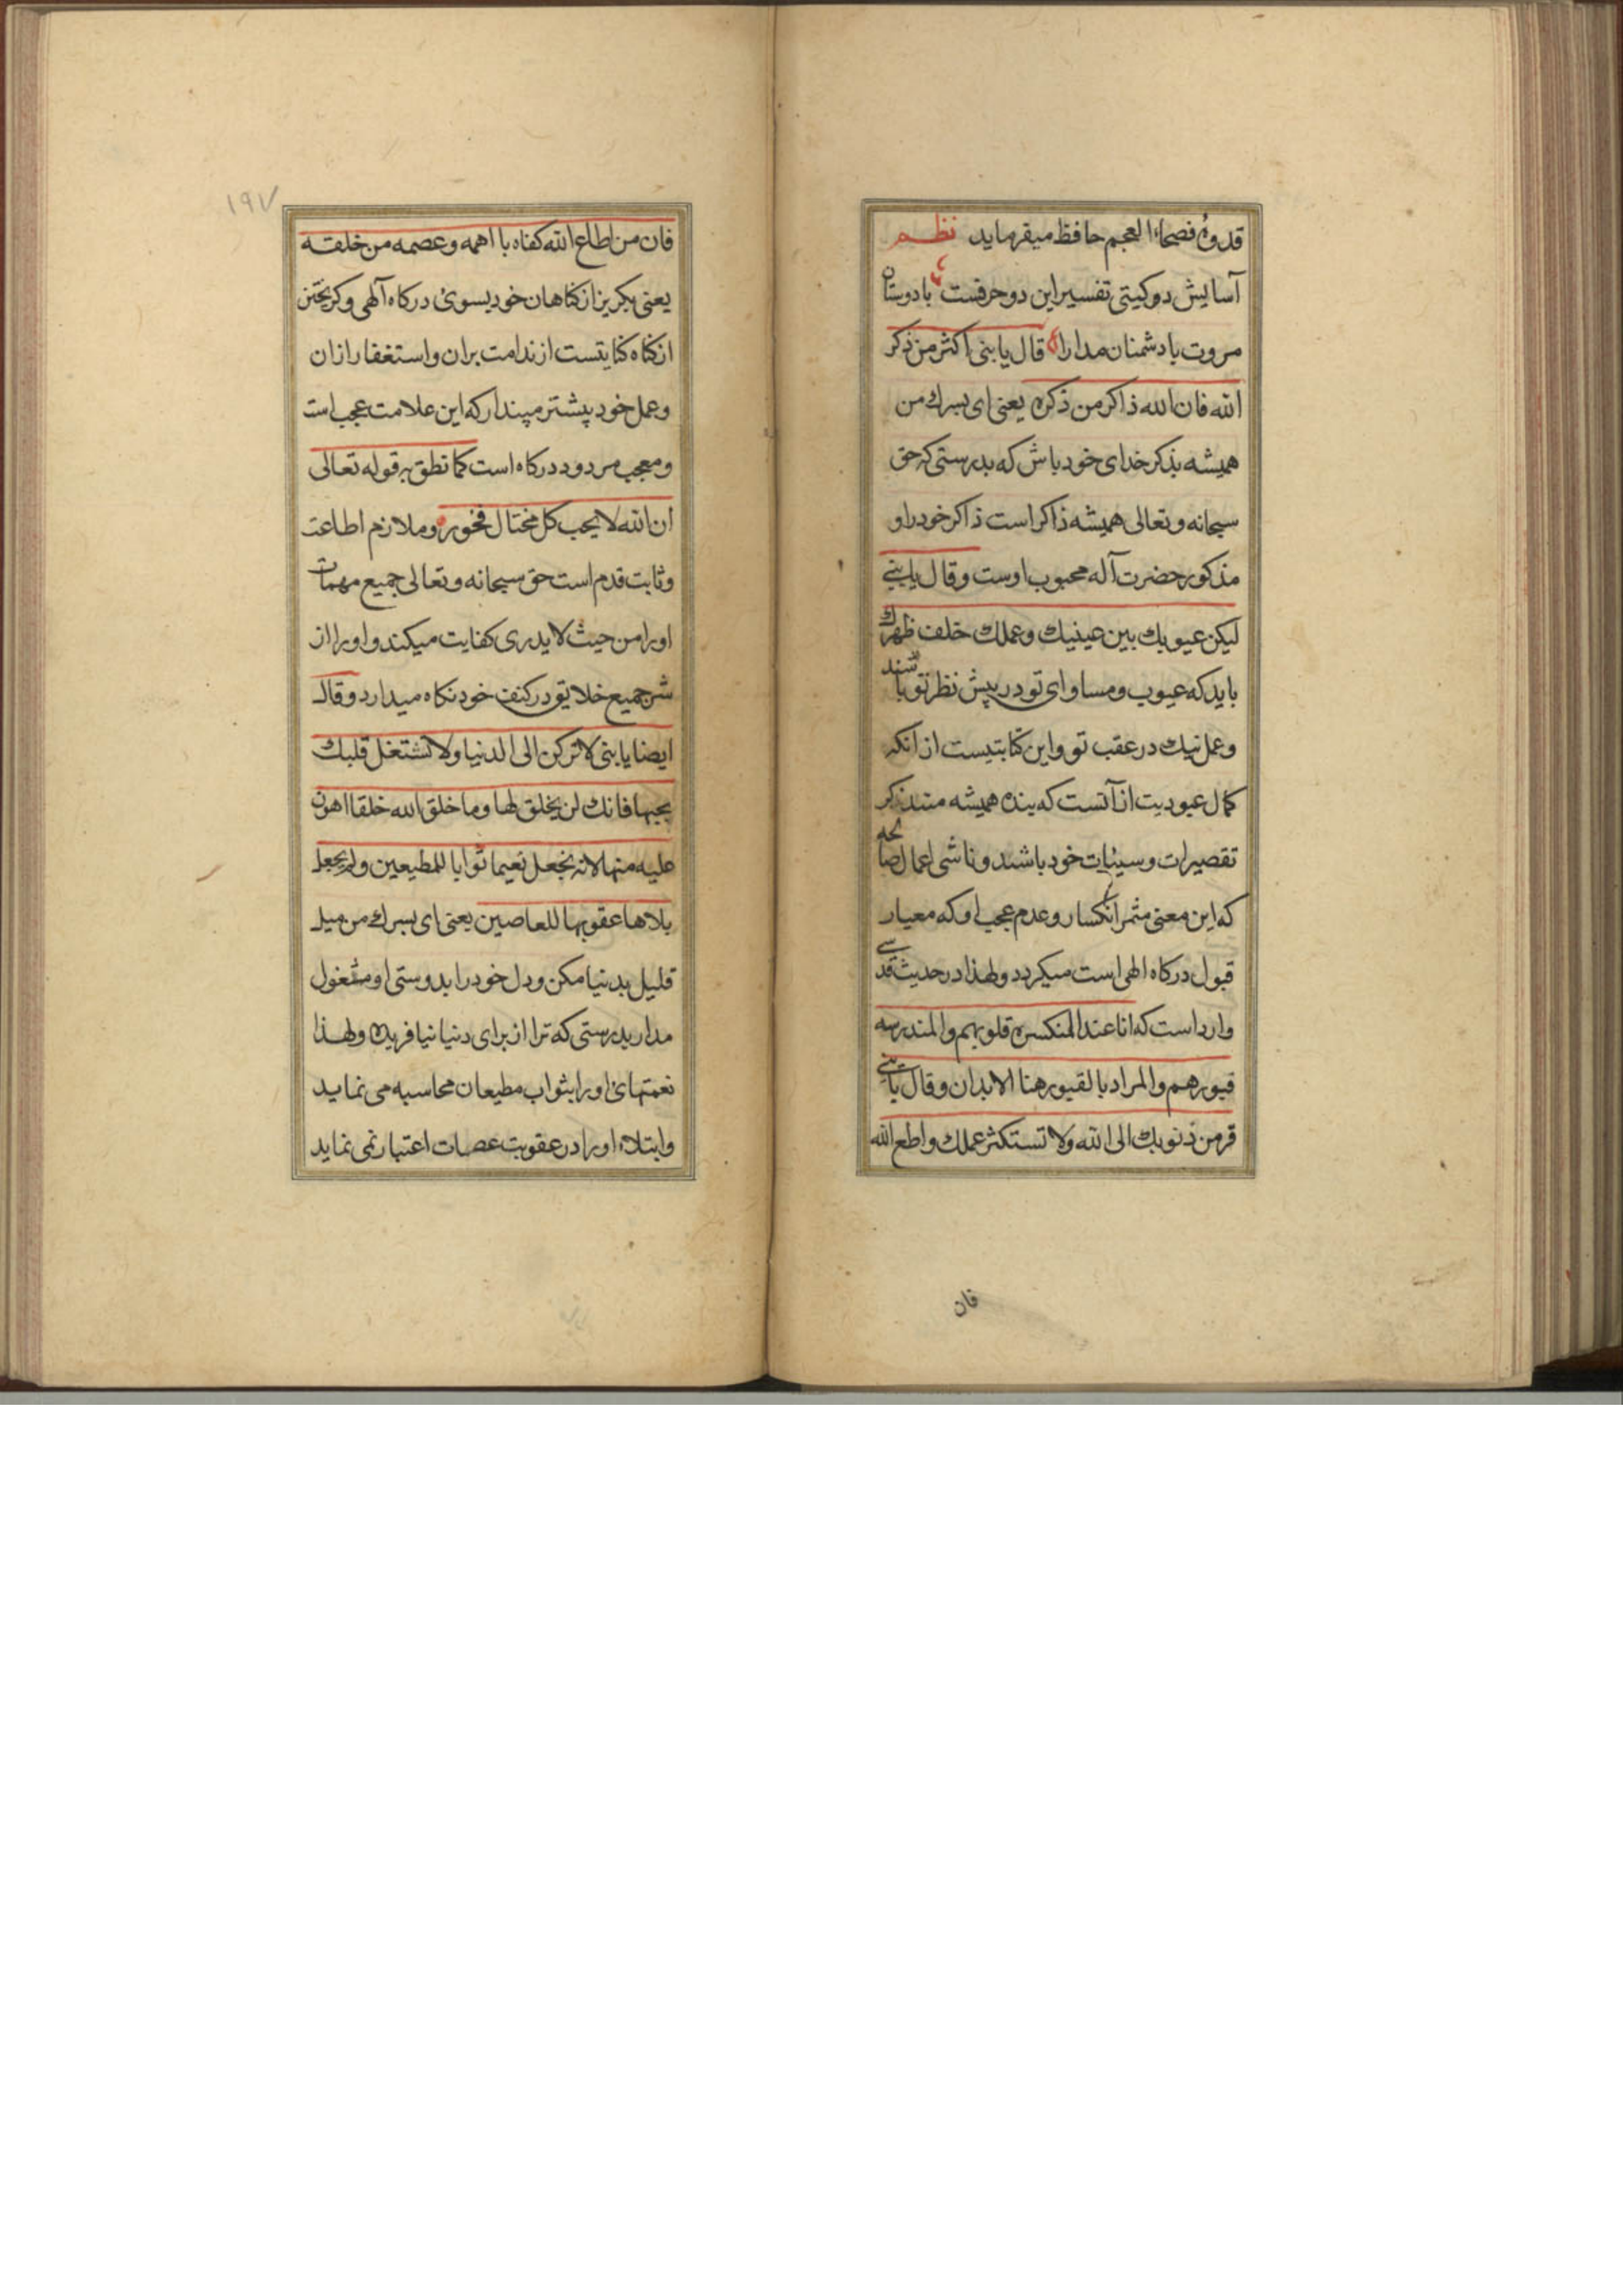 قدوهٔ فصحاء العجم حافظ میفرماید نظم
آسایش دو کیتی تفسیر این دو حرفست با دوستان
مروت با دشمنان مدارا قال یا بنی اکثر من ذکر
الله فان الله ذاکر من ذکره یعنی ای پسرك من
همیشه بذکر خدای خود باش که بدرستی که حق
سبحانه و تعالی همیشه ذاکر است ذاکر خود را و
مذکور حضرت آله محبوب اوست و قال یا بنی
لیکن عیوبك بین عینیك و عملك خلف ظهرك
باید که عیوب و مساوای تو در پیش نظر تو باشند
و عمل نیك در عقب تو و این کنایتیست از آنکه
کمال عبودیت از آنست که بنده همیشه متذکر
تقصیرات و سیئات خود باشند و ناشی اعمال صالحه
که این معنی مثمر انکسار و عدم عجب او که معیار
قبول درکاه الهی است میکردد و لهذا در حدیث قدسی
وارد است که انا عند المنکسره قلوبهم و المندرسه
قبورهم و المراد بالقبور هنا الابدان و قال یا بنی
فر من ذنوبك الی الله ولا تستکثر عملك و اطع الله
فان
١٩٧
فان من اطاع الله کفاه با اهمه و عصمه من خلقه
یعنی بکریز از کناهان خود بسوئ درکاه آلهی و کریختن
از کناه کنایتست از ندامت بران و استغفار ازان
و عمل خود پیشتر مپندار که این علامت عجب است
و معجب مردود درکاه است کما نطق به قوله تعالی
ان الله لا یحب کل مختال فخور و ملازم اطاعت
و ثابت قدم است حق سبحانه و تعالی جمیع مهمات
او را من حیث لا یدری کفایت میکند و او را از
شر جمیع خلایق در کنف خود نکاه میدارد و قال
ایضا یا بنی لا ترکن الی الدنیا ولا تشتغل قلبك
بحبها فانك لن یخلق لها و ما خلق الله خلقا اهون
علیه منها لانه نجعل نعیما ثوابا للمطیعین و لم یجعل
بلاها عقوبها للعاصین یعنی ای پسرك من میل
قلیل بدنیا مکن و دل خود را بدوستی او مشغول
مدار بدرستی که ترا از برای دنیا نیافریده و لهذا
نعمتهای او را بثواب مطیعان محاسبه می نماید
و ابتلاء او را در عقوبت عصات اعتبار نمی نماید